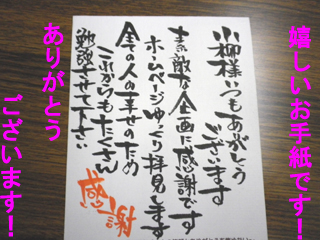 嬉しいお手紙です!
小柳様いつもありがとう
ございます
素敵な企画に感謝です
ホームページゆっくり拝見します
全ての人の幸せのため
これからもたくさん
勉強させて下さい
感謝
ありがとう
ございます!